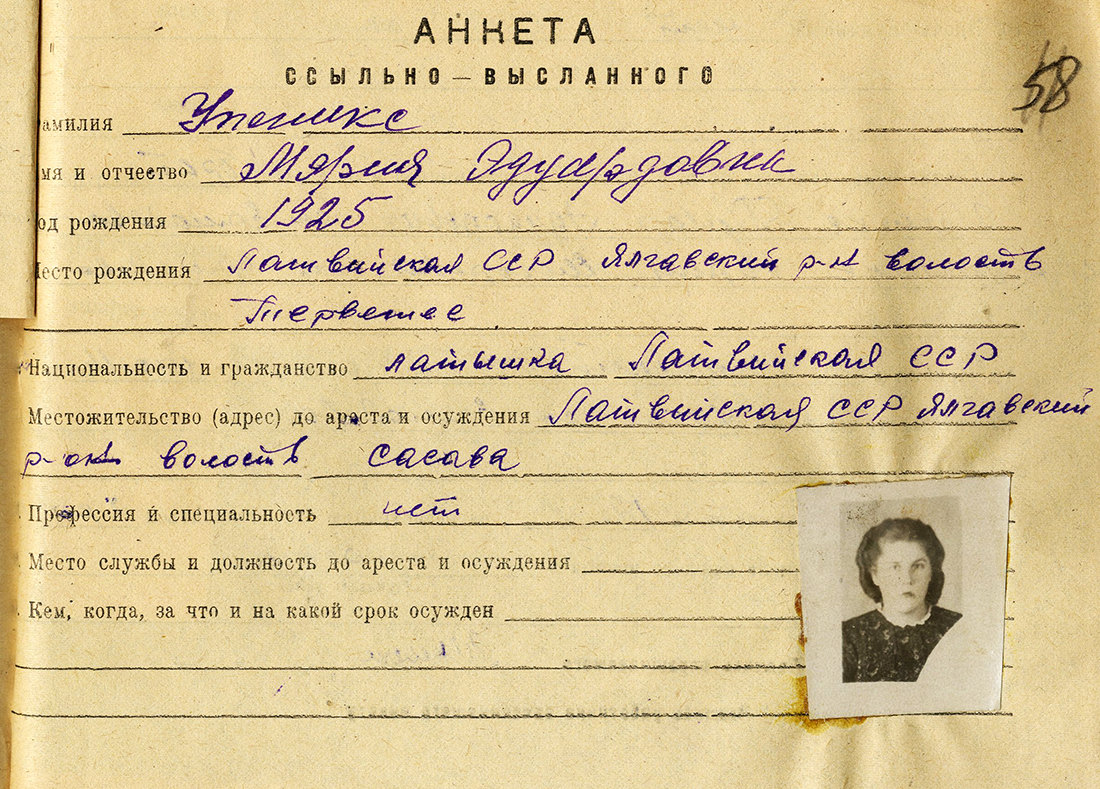 АНКЕТА
ССЫЛЬНО-ВЫСЛАННОГО
58
амилия Упеникс
мя и отчество Мария Эдуардовна
од рождения 1925
есто рождения Латвийская ССР Ялгавский р-н волость
Терветес
Национальность и гражданство латышка Латвийская ССР
Местожительство (адрес) до ареста и осуждения Латвийская ССР Ялгавский
р-он волость Сасава
Профессия и специальность нет
Место службы и должность до ареста и осуждения
Кем, когда, за что и на какой срок осужден